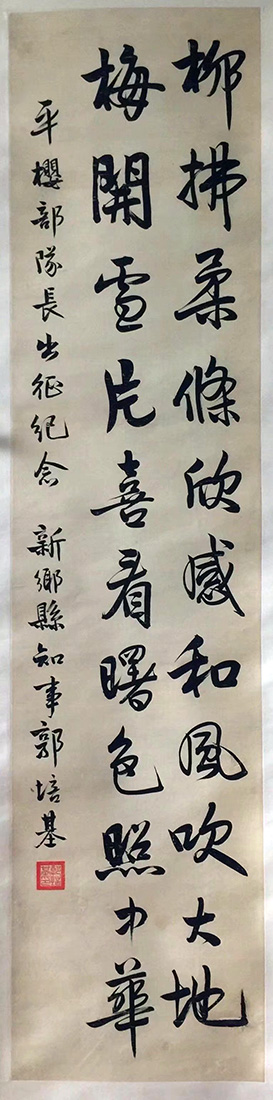 柳拂柔條欣感和風吹大地
梅開雪片喜看曙色照中華
平櫻部隊長出征紀念 新鄉縣知事郭培基